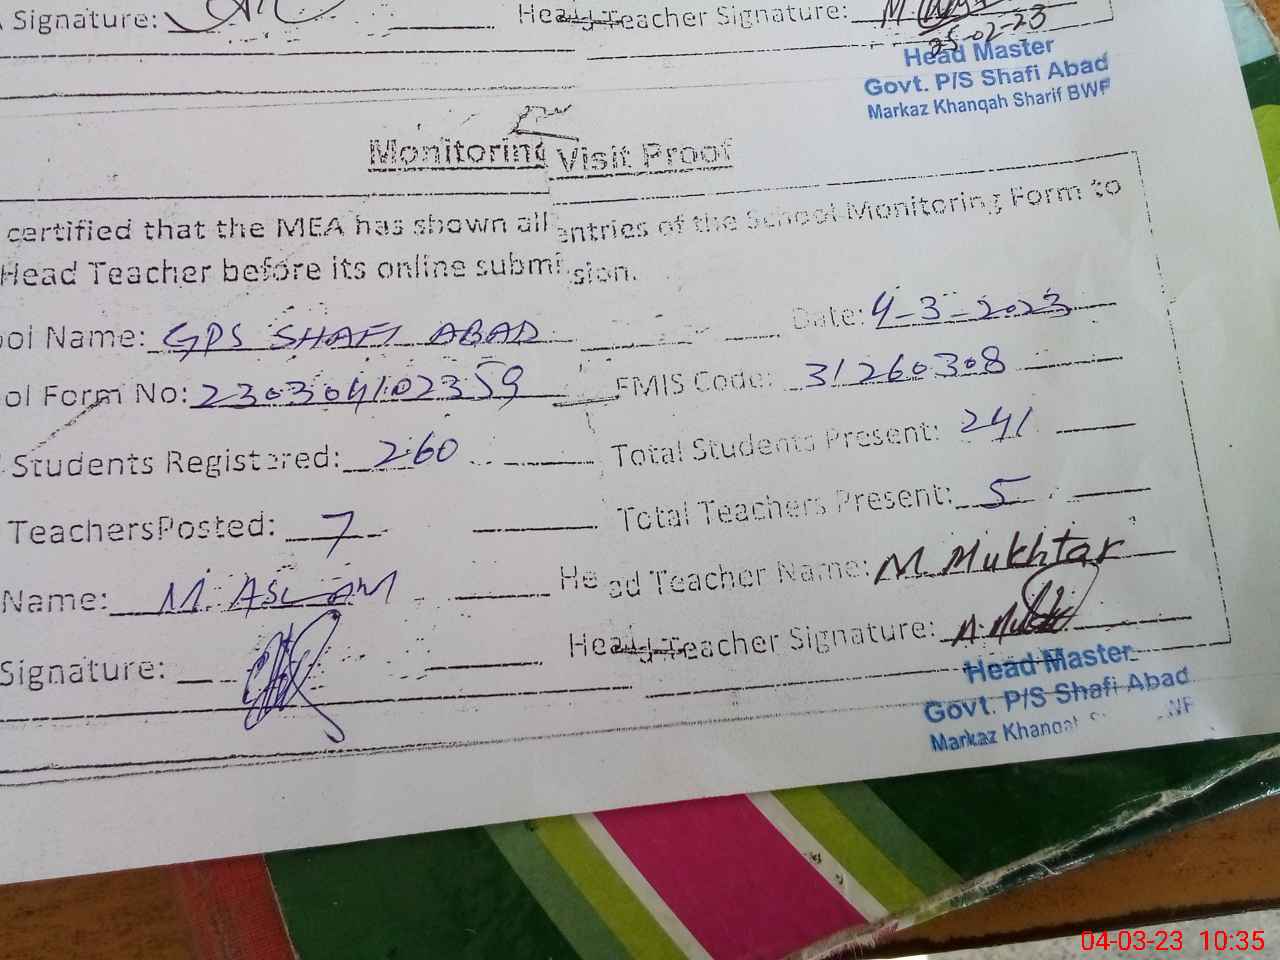 Signature:
Head Teacher Signature:
25-02-23
Head Master
Govt. P/S Shafi Abad
Markaz Khanqah Sharif BWP
Monitoring Visit Proof
certified that the MEA has shown all entries of the School Monitoring Form to
Head Teacher before its online submission.
ool Name: GPS SHAFI ABAD Date: 4-3-2023
ool Form No: 230304102359 EMIS Code: 31260308
Students Registered: 260 Total Students Present: 241
TeachersPosted: 7 Total Teachers Present: 5
Name: M. ASLAM Head Teacher Name: M. Mukhtar
Signature: Head Teacher Signature:
Head Master
Govt. P/S Shafi Abad
Markaz Khanqah
04-03-23 10:35